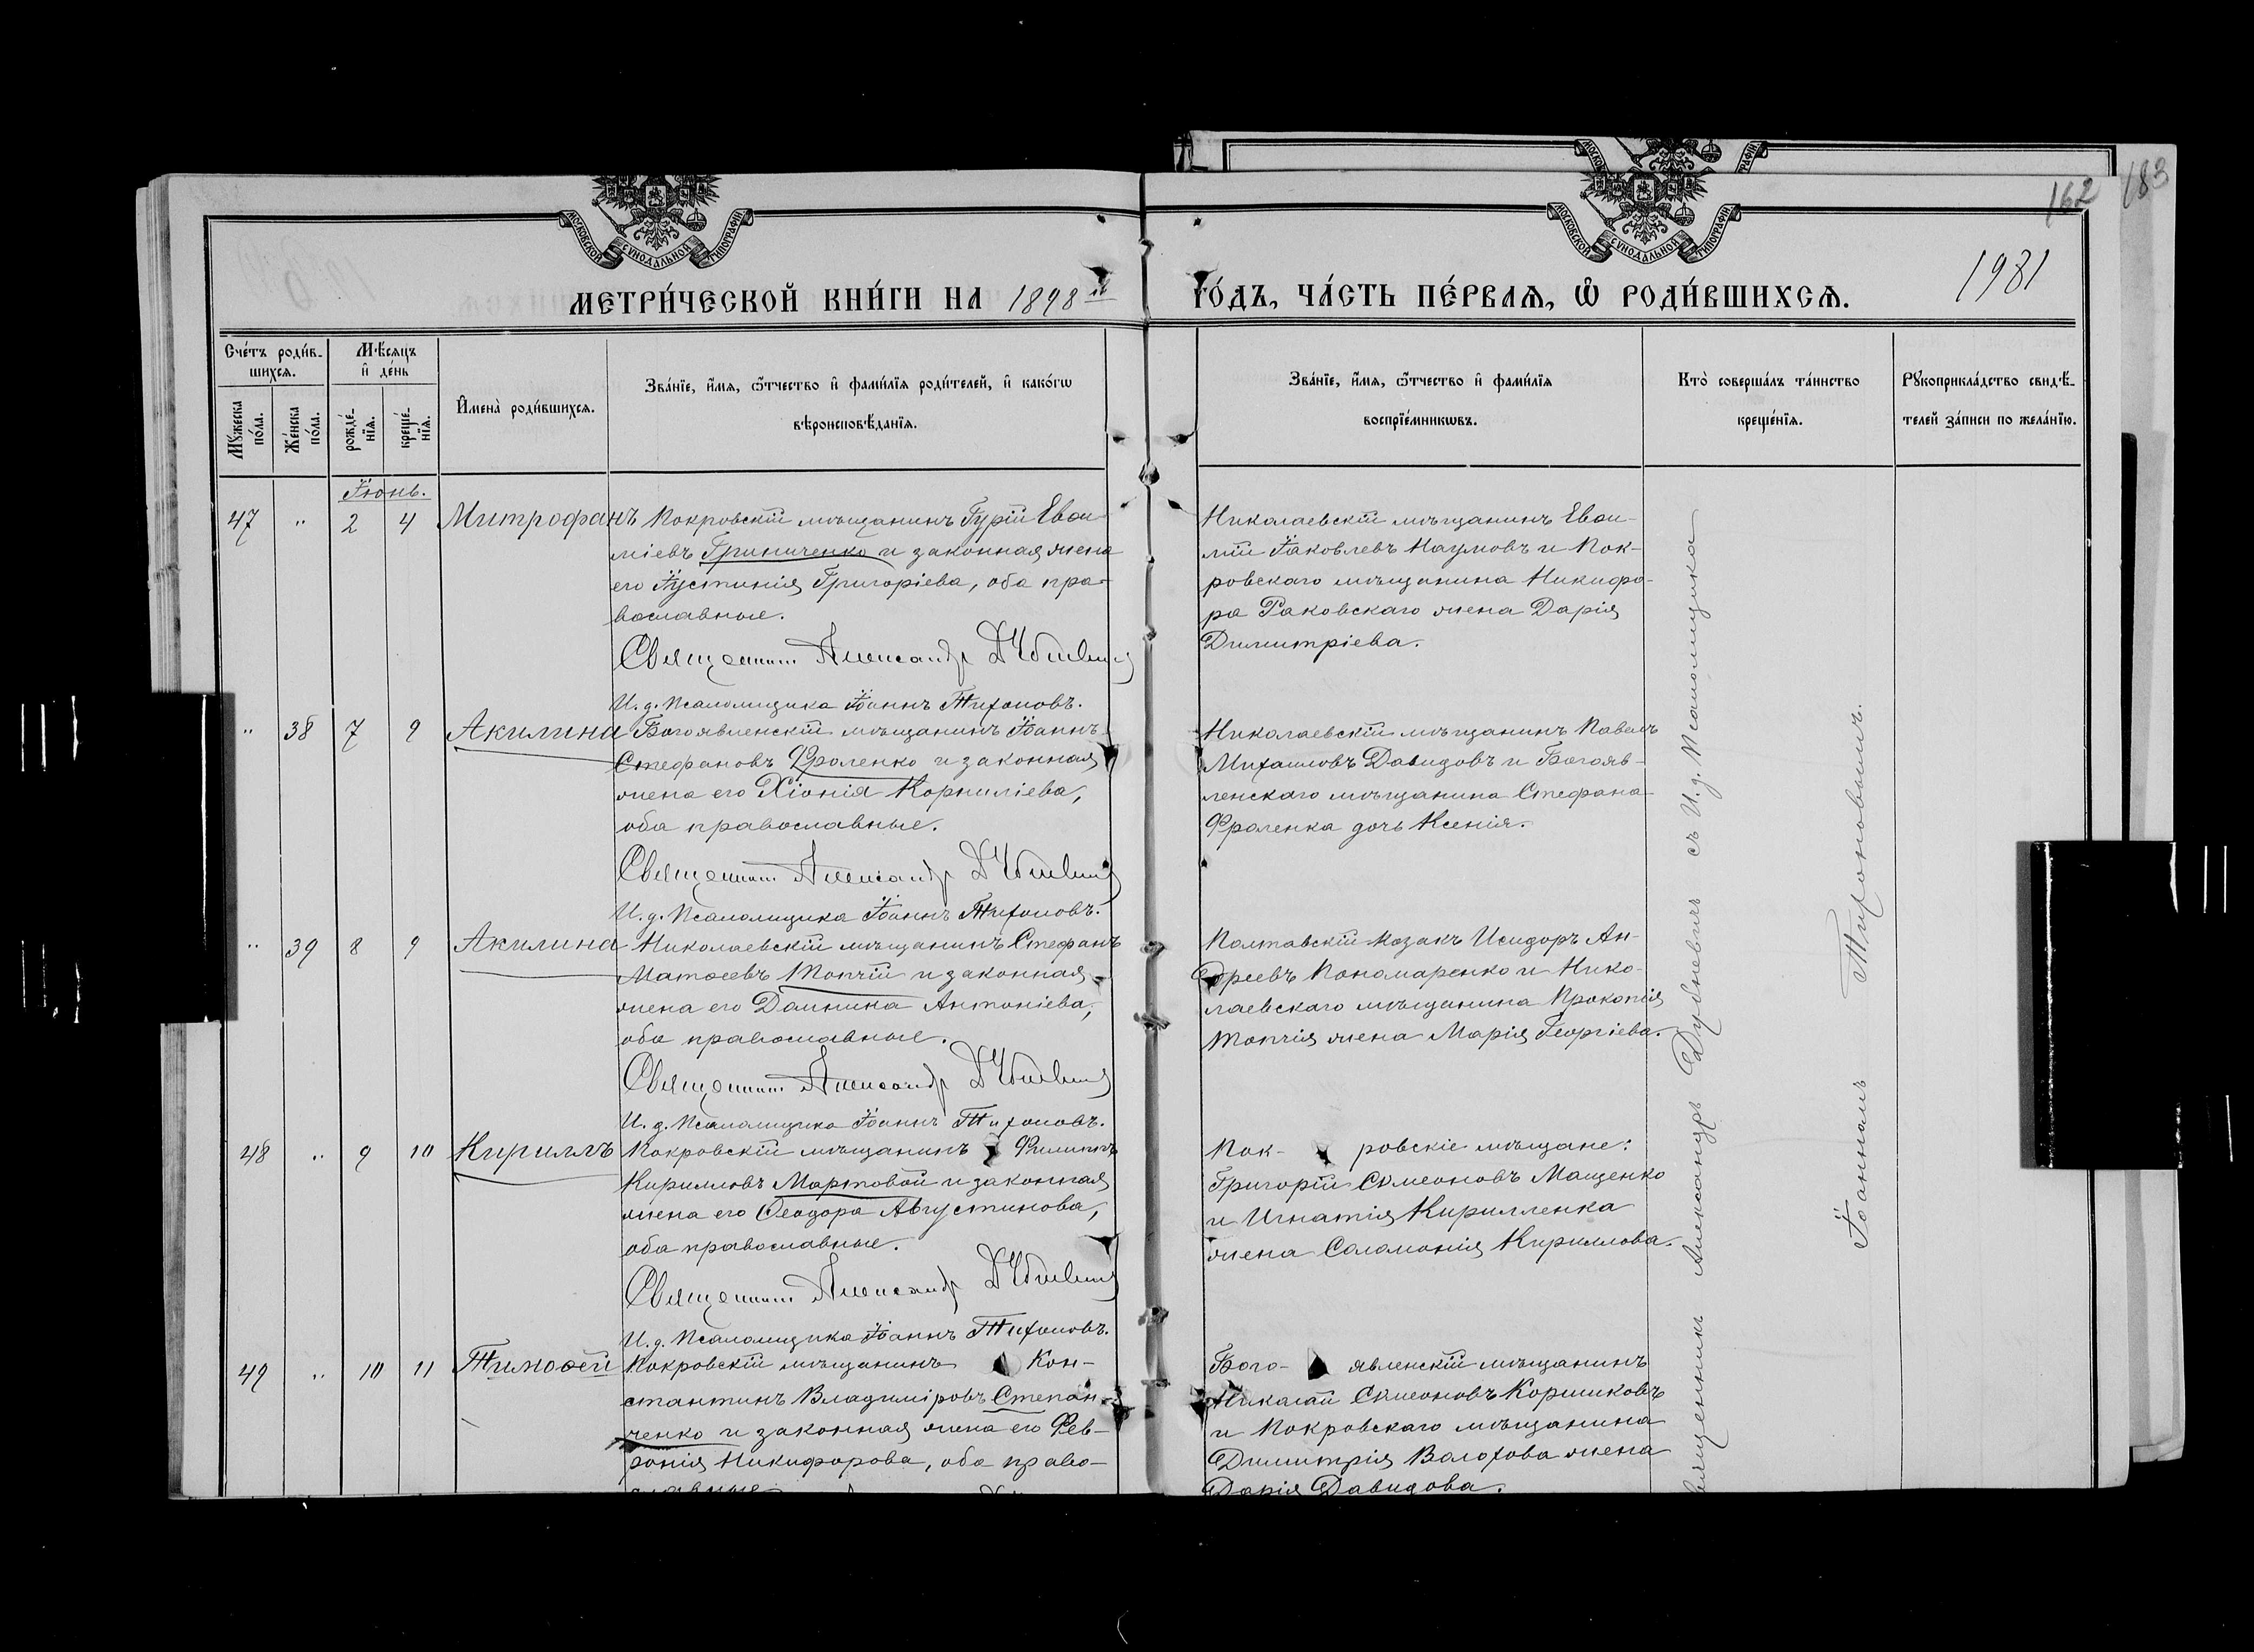 162 183
МОСКОВСКОЙ СѴНОДАЛЬНОЙ ТИПОГРАФІИ
МОСКОВСКОЙ СѴНОДАЛЬНОЙ ТИПОГРАФІИ
1981
МЕТРИ́ЧЕСКОЙ КНИ́ГИ НА 1898 й ГО́ДЪ, ЧА́СТЬ ПЕ́РВАѦ, Ѡ҆ РОДИ́ВШИХСѦ.
Сче́тъ роди́в-
шихсѧ.
Мꙋ́жеска по́ла.
Же́нска по́ла.
Мѣ́сѧцъ и҆ де́нь
рожде́-нїѧ.
креще́-нїѧ.
И҆мена̀ роди́вшихсѧ.
Зва́нїе, и҆́мѧ, ѻ҆́тчество и҆ фами́лїѧ роди́телей, и҆ како́гѡ
вѣроисповѣ́данїѧ.
Зва́нїе, и҆́мѧ, ѻ҆́тчество и҆ фами́лїѧ
воспрїе́мникѡвъ.
Кто̀ соверша́лъ та́инство
креще́нїѧ.
Рꙋкоприкла́дство свидѣ́-
телей за́писи по жела́нїю.
Іюнь.
47 " 2 4 Митрофанъ
Покровскій мѣщанинъ Гурій Евѳи-
міевъ Гриниченко и законная жена
его Іустинія Григоріева, оба пра-
вославные.
Священникъ Александр Дубневичъ
И. д. Псаломщика Іоаннъ Тихоновъ.
Николаевскій мѣщанинъ Евѳи-
мій Іаковлевъ Наумовъ и Пок-
ровскаго мѣщанина Никифо-
ра Раковскаго жена Дарія
Димитріева.
" 38 7 9 Акилина
Богоявленскій мѣщанинъ Іоаннъ
Стефановъ Фроленко и законная
жена его Хіонія Корниліева,
оба православные.
Священникъ Александр Дубневичъ
И. д. Псаломщика Іоаннъ Тихоновъ.
Николаевскій мѣщанинъ Павелъ
Михаиловъ Давидовъ и Богояв-
ленскаго мѣщанина Стефана
Фроленка дочь Ксенія.
" 39 8 9 Акилина
Николаевскій мѣщанинъ Стефанъ
Матѳеевъ Топчій и законная
жена его Домника Антоніева,
оба православные.
Священникъ Александр Дубневичъ
И. д. Псаломщика Іоаннъ Тихоновъ.
Полтавскій козакъ Исидоръ Ан-
дреевъ Пономаренко и Нико-
лаевскаго мѣщанина Прокопія
Топчія жена Марія Георгіева.
48 " 9 10 Кириллъ
Покровскій мѣщанинъ Филиппъ
Кирилловъ Мартовой и законная
жена его Ѳеодора Августинова,
оба православные.
Священникъ Александр Дубневичъ
И. д. Псаломщика Іоаннъ Тихоновъ.
Пок- ровскіе мѣщане:
Григорій Симеоновъ Мащенко
и Игнатія Кирилленка
жена Саломонія Кириллова.
49 " 10 11 Тимоѳей
Покровскій мѣщанинъ Кон-
стантинъ Владиміровъ Степан-
ченко и законная жена его Фев-
ронія Никифорова, оба право-
славные
Бого- явленскій мѣщанинъ
Николай Симеоновъ Коршиковъ
и Покровскаго мѣщанина
Димитрія Волохова жена
Дарія Давидова.
Священникъ Александръ Дубневичъ съ И. д. Псаломщика
Іоанномъ Тихоновымъ.